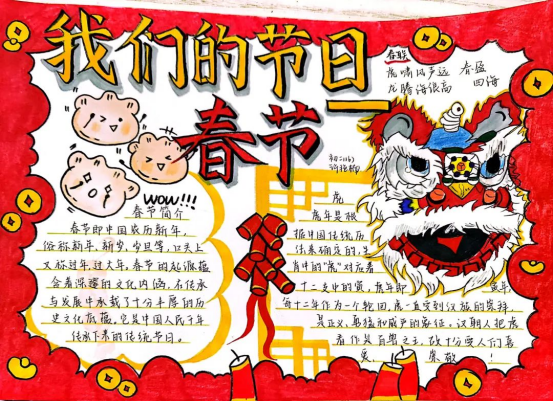 我们的节日
春节
春联
虎啸风声远
龙腾海浪高
春盈
四海
初二(6)
WOW!!!
春节简介
春节即中国农历新年,
俗称新年、新岁、岁旦等,口头上
又称过年、过大年。春节的起源蕴
含着深邃的文化内涵,在传承
与发展中承载了十分丰厚的历
史文化底蕴。它是中国人民千年
传承下来的传统节日。
虎
虎年是根
据中国传统历
法来确定的,生
肖中的“虎”对应着
十二支中的寅,虎年即 寅年,
每十二年作为一个轮回,虎一直受到汉族的崇拜,
是正义、勇猛和威严的象征,汉朝人把虎
看作是百兽之王,故十分受人们喜
爱、 崇敬!